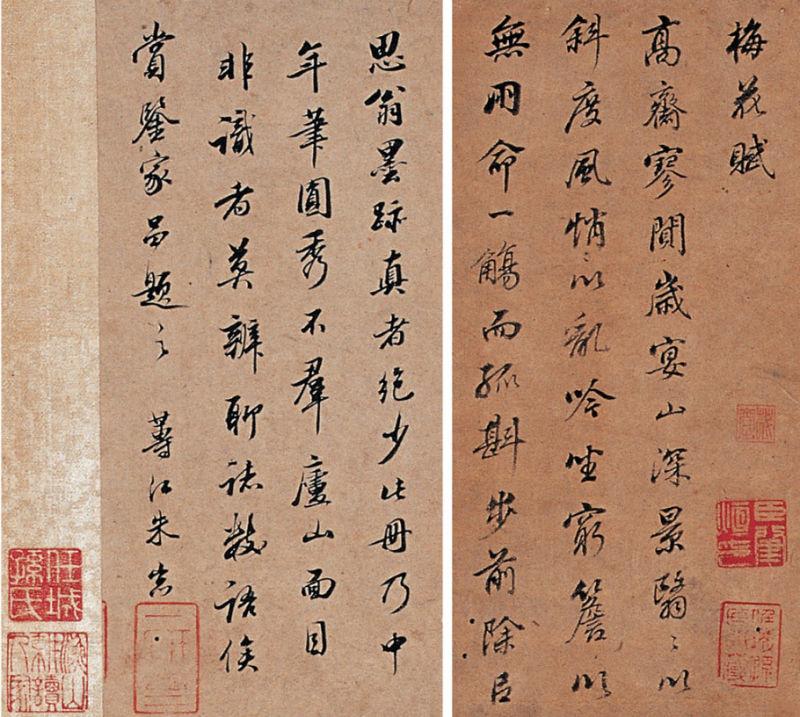 梅花賦
高齋寥閴歲宴山深景翳〻以
斜度風悄〻以亂吟坐窮簷以
無朋命一觴而孤斟步前除㠯
思翁墨跡真者絕少此冊乃中
年筆圓秀不羣廬山面目
非識者莫辨聊誌數語俟
賞鑒家品題之 蓴江朱
任城孫氏